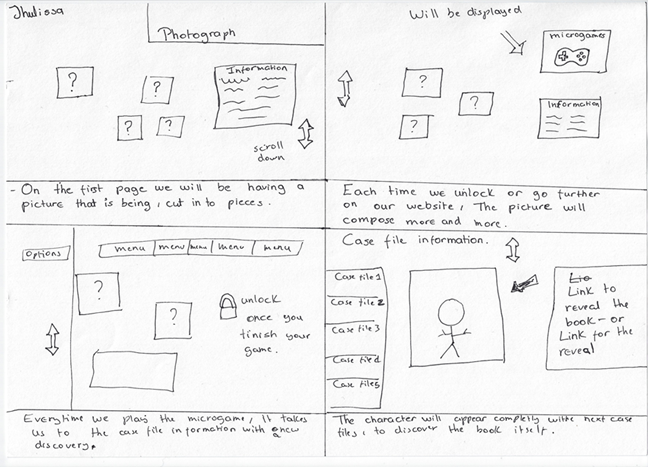 Jhulissa
Photograph
?
?
?
?
Information
scroll
down
- On the first page we will be having a
picture that is being, cut in to pieces.
Will be displayed
microgames
?
?
?
Information
Each time we unlock or go further
on our website, The picture will
compose more and more.
Options
menu
menu
menu
menu
menu
?
?
unlock
once you
finish your
game.
Everytime we plays the microgame, It takes
us to the case file information with a new
discovery.
Case file information.
Case file 1
Case file 2
Case file 3
Case file 4
Case file 5
Link to
reveal the
book - or
Link for the
reveal
The character will appear completly with next case
files, to discover the book itself.